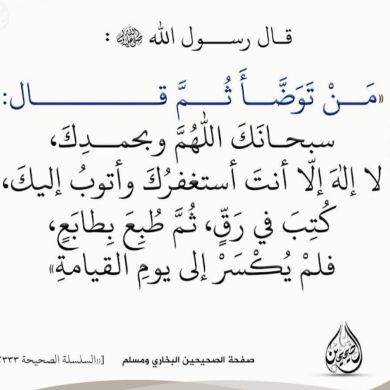 قال رسول الله ﷺ :
«مَنْ تَوَضَّأَ ثُمَّ قال:
سبحانَكَ اللهُمَّ وبحمدِكَ،
لا إلهَ إلّا أنتَ أستغفرُكَ وأتوبُ إليكَ،
كُتِبَ في رَقٍّ، ثُمَّ طُبِعَ بِطابَعٍ،
فلمْ يُكْسَرْ إلى يومِ القيامةِ»
الصحيحين
صفحة الصحيحين البخاري ومسلم
[((السلسلة الصحيحة